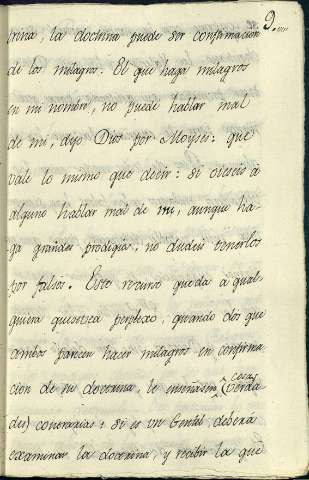 9.
trina, la doctrina puede ser confirmacion
de los milagros. El que haga milagros
en mi nombre, no puede hablar mal
de mi, dijo Dios por Moyses: que
vale lo mismo que decir: si oieseis à
alguno hablar mal de mi, aunque ha-
ga grandes prodigios, no dudeis tenerlos
por falsos. Este recurso queda à qual-
quiera que se vea perplexo, quando dos que
ambos parecen hacer milagros en confirma
cion de su doctrina, le enseñasen cosas
(verda
des) contrarias: si es un Gentil, deberà
examinar la doctrina, y recibir la que